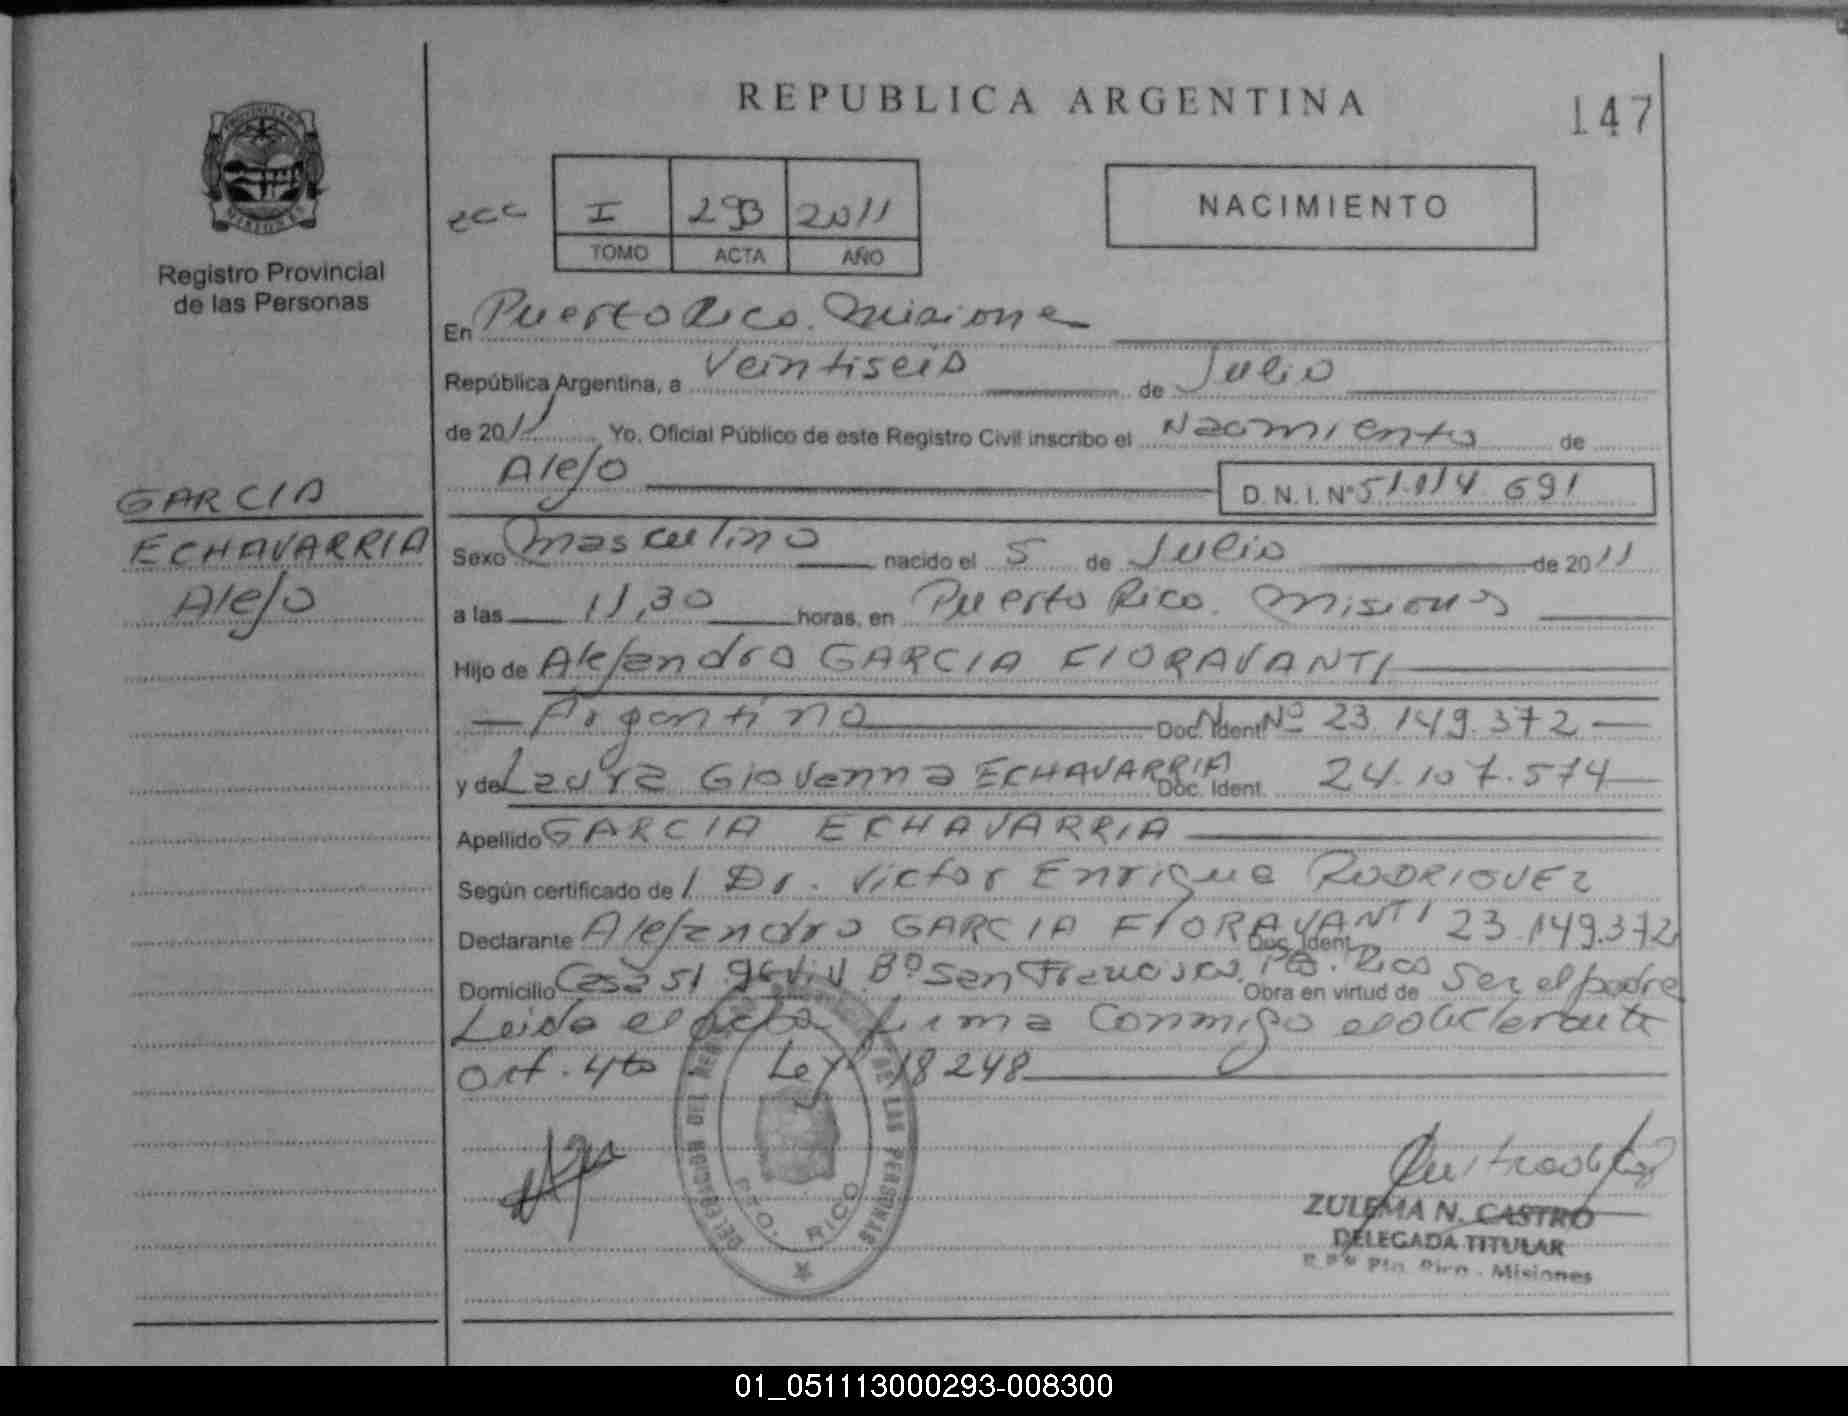 REPUBLICA ARGENTINA
147
PROVINCIA DE
MISIONES
Registro Provincial
de las Personas
ecc I 293 2011
TOMO ACTA AÑO
NACIMIENTO
En Puerto Rico. Misiones
República Argentina, a Veintiseis de Julio
de 2011 Yo, Oficial Público de este Registro Civil inscribo el Nacimiento de
Alejo D.N.I. Nº 51.014.691
GARCIA
ECHAVARRIA
Alejo
Sexo masculino nacido el 5 de Julio de 2011
a las 11,30 horas, en Puerto Rico. Misiones
Hijo de Alejandro GARCIA FIORAVANTI
Argentino Doc. Ident. Nº 23.149.372
y de Laura Giovanna ECHAVARRIA Doc. Ident. 24.107.574
Apellido GARCIA ECHAVARRIA
Según certificado de l Dr. Victor Enrique RODRIGUEZ
Declarante Alejandro GARCIA FIORAVANTI Doc. Ident. 23.149.372
Domicilio Casa 51 Bº San Francisco. Pto. Rico Obra en virtud de Ser el padre
Leida el acta firma Conmigo el declarante
art. 4to Ley 18248
DELEGACION DEL REGISTRO DE LAS PERSONAS
PTO. RICO
ZULEMA N. CASTRO
DELEGADA TITULAR
R.P.P. Pto. Rico - Misiones
01_051113000293-008300